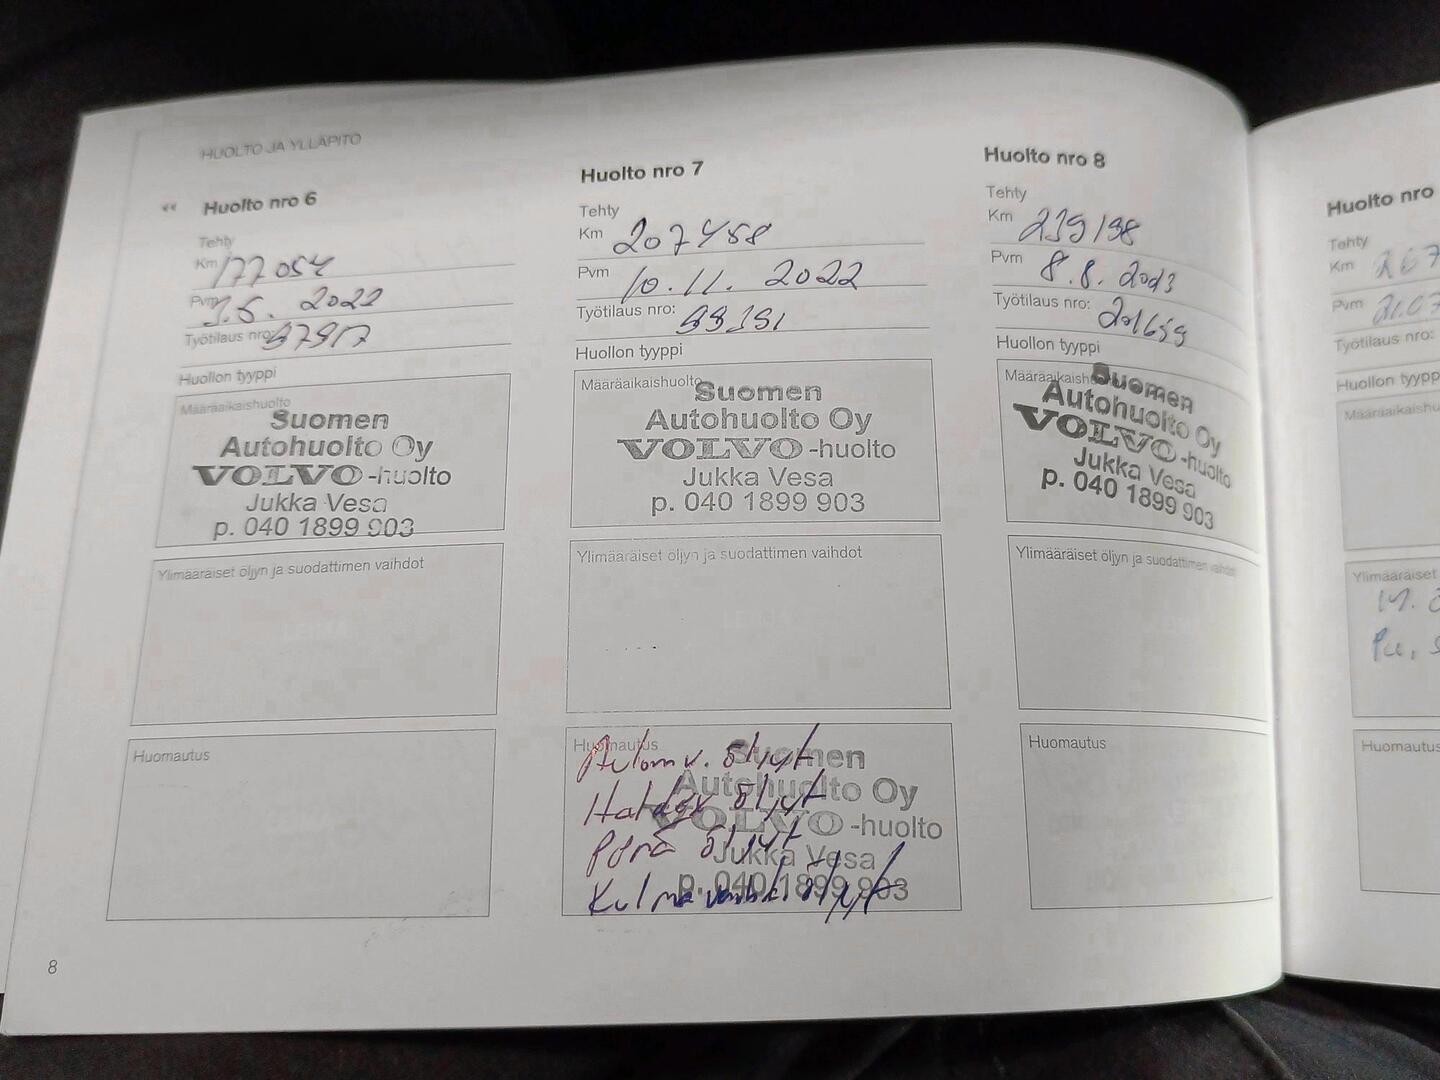 HUOLTO JA YLLÄPITO
◂◂ Huolto nro 6
Tehty
Km 177 054
Pvm 3.5. 2022
Työtilaus nro:
Huollon tyyppi
Määräaikaishuolto
Suomen
Autohuolto Oy
VOLVO-huolto
Jukka Vesa
p. 040 1899 903
Ylimääräiset öljyn ja suodattimen vaihdot
Huomautus
8
Huolto nro 7
Tehty
Km 207458
Pvm 10.11. 2022
Työtilaus nro: 99391
Huollon tyyppi
Määräaikaishuolto
Suomen
Autohuolto Oy
VOLVO-huolto
Jukka Vesa
p. 040 1899 903
Ylimääräiset öljyn ja suodattimen vaihdot
Huomautus
Autom v. öljyt
Haldex öljyt
Perä öljyt
Kulmavaihd. öljyt
Suomen
Autohuolto Oy
VOLVO-huolto
Jukka Vesa
p. 040 1899 903
Huolto nro 8
Tehty
Km 239198
Pvm 8.8. 2023
Työtilaus nro: 201659
Huollon tyyppi
Määräaikaish
Suomen
Autohuolto Oy
VOLVO-huolto
Jukka Vesa
p. 040 1899 903
Ylimääräiset öljyn ja suodattimen vaihdot
Huomautus
Huolto nro
Tehty
Km 267
Pvm 21.07
Työtilaus nro:
Huollon tyypp
Määräaikaishu
Ylimääräiset
Huomautus